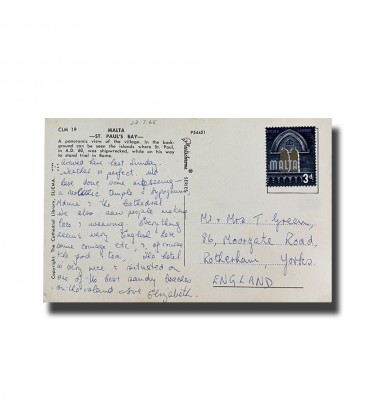 CLM 19
MALTA
PS6651
—ST. PAUL'S BAY—
A panoramic view of the village. In the back-
ground can be seen the islands where St. Paul,
in A.D. 60, was shipwrecked, while on his way
to stand trial in Rome.
Copyright The Cathedral Library, SLIEMA
Plastichrome
SERIES
MALTA
3d
arrived here last Sunday.
Weather is perfect. We
have done some
temple &
the Cathedral
We also saw people making
lace & weaving. Everything
seems very English here
same coinage etc. & of course
the food & tea. The hotel
is very nice & situated on
one of the best sandy beaches
on the island Love Elizabeth.
Mr. & Mrs. T. Green,
86, Moorgate Road,
Rotherham, Yorks
ENGLAND